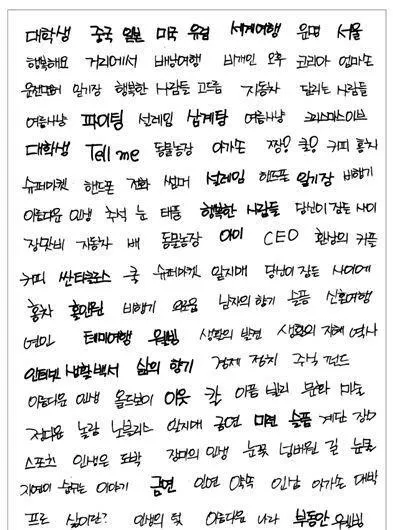 대학생 중국 일본 미국 유럽 세계여행 운명 서울
행복해요 거리에서 배낭여행 비개인 오후 코리아 엄마손
일기장 행복한 사람들 고드름 자동차 달리는 사람들
여름사냥 파이팅 설레임 삼계탕 여름사냥 크리스마스이브
대학생 Tell me 동물농장 아가손 짱? 쿨? 커피 홍차
슈퍼마켓 핸드폰 전화 썸머 설레임 핸드폰 일기장 비행기
아름다운 인생 추석 눈 태풍 행복한 사람들 당신이 잠든 사이
장맛비 자동차 배 동물농장 아이 CEO 환상의 커플
커피 싼타클로스 쿡 슈퍼마켓 일지매 당신이 잠든 사이에
홍차 홀인원 비행기 외로움 남자의 향기 슬픔 신혼여행
연인 테마여행 웨딩 생활의 발견 생활의 지혜 역사
인터넷 생활백서 삶의 향기 경제 정치 주식 펀드
아름다운 인생 올드보이 이웃 칼 이름 빌리 문화 미술
정다운 노블리스 일지매 공연 미련 슬픔 계단
스포츠 인생은 도박 장미의 인생 눈꽃 넘버원 길 눈물
지연이 숨쉬는 이야기 금연 인연 약속 인삼 아가손 대박
프로 싦이란? 인생의 덫 아름다운 나라 부동산 웨딩